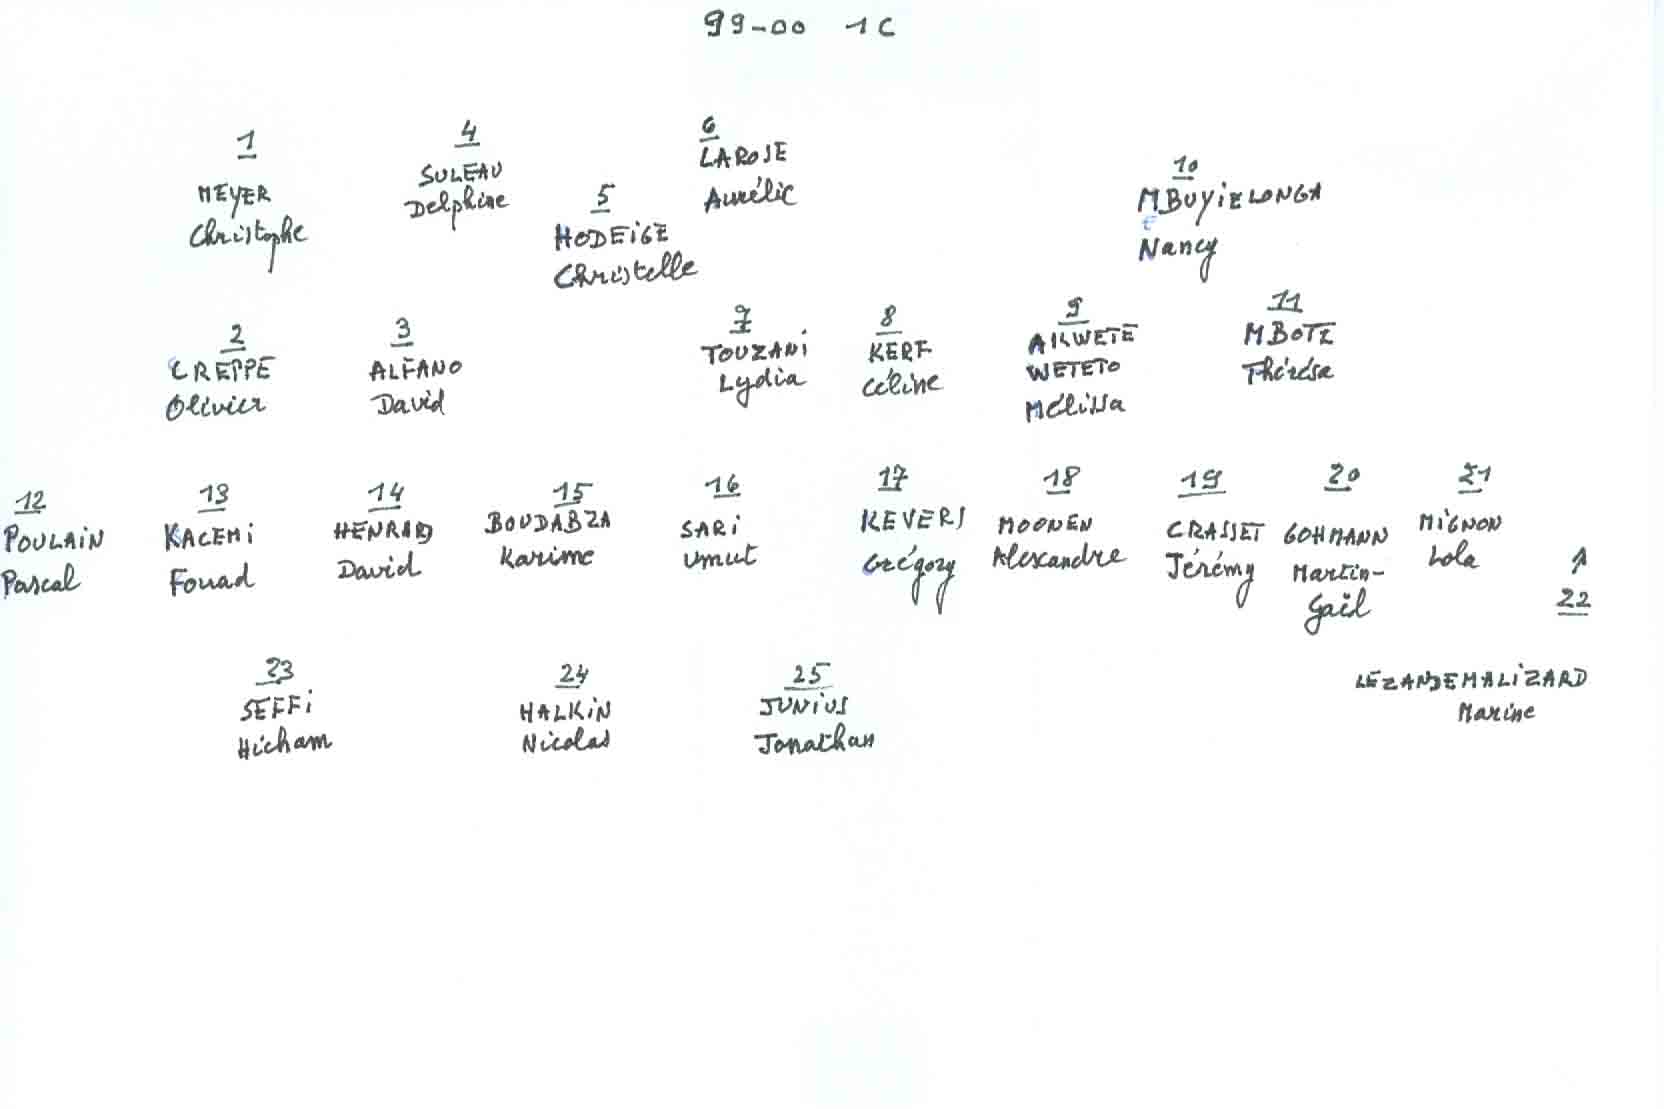 99-00 1C
1
MEYER
Christophe
4
SULEAU
Delphine
5
HODEIGE
Christelle
6
LAROSE
Aurélie
10
MBUYIELONGA
Nancy
2
CREPPE
Olivier
3
ALFANO
David
7
TOUZANI
Lydia
8
KERF
Céline
9
AKWETE
WETETO
Mélissa
11
MBOTE
Thérésa
12
POULAIN
Pascal
13
KACEMI
Fouad
14
HENRARD
David
15
BOUDABZA
Karime
16
SARI
Umut
17
KEVERS
Grégory
18
MOONEN
Alexandre
19
CRASSET
Jérémy
20
GOHMANN
Martin-
Gaël
21
MIGNON
Lola
↑
22
LEZANDEMALIZARD
Marine
23
SEFFI
Hicham
24
HALKIN
Nicolas
25
JUNIUS
Jonathan